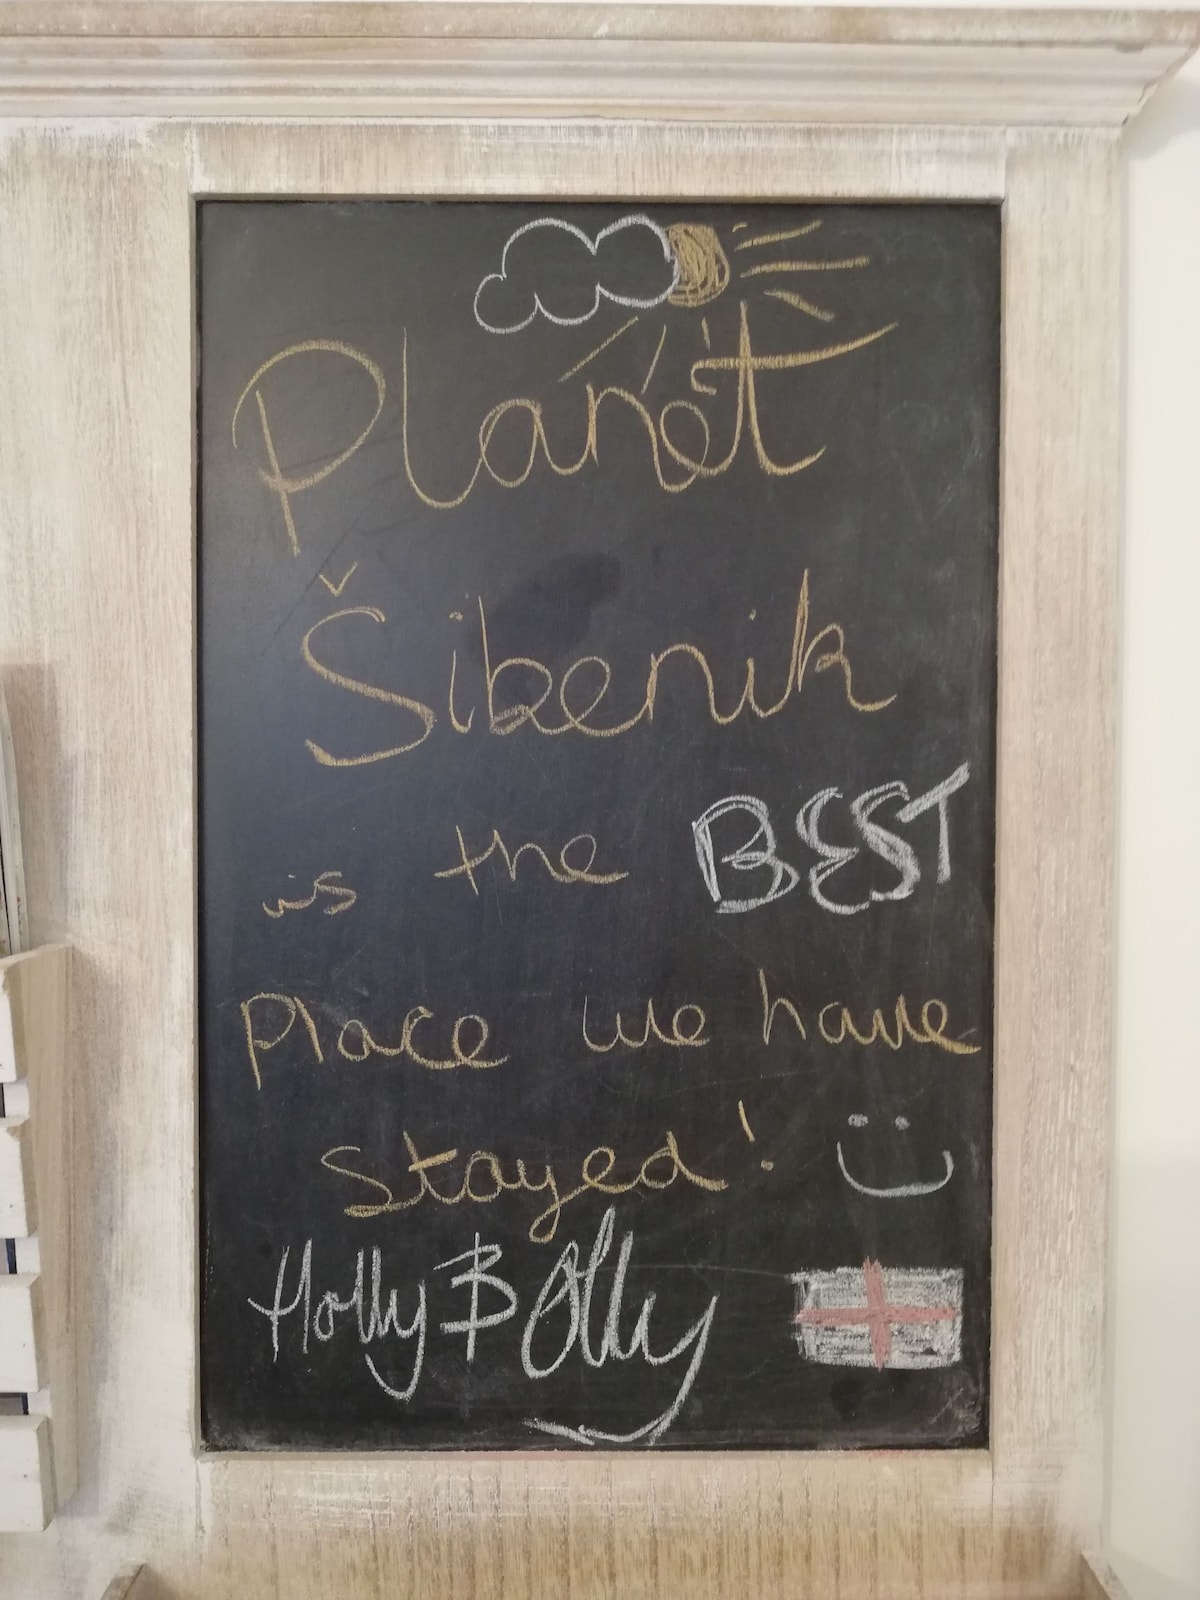 Planet
Šibenik
is the BEST
Place we have
stayed!
Holly & Olly